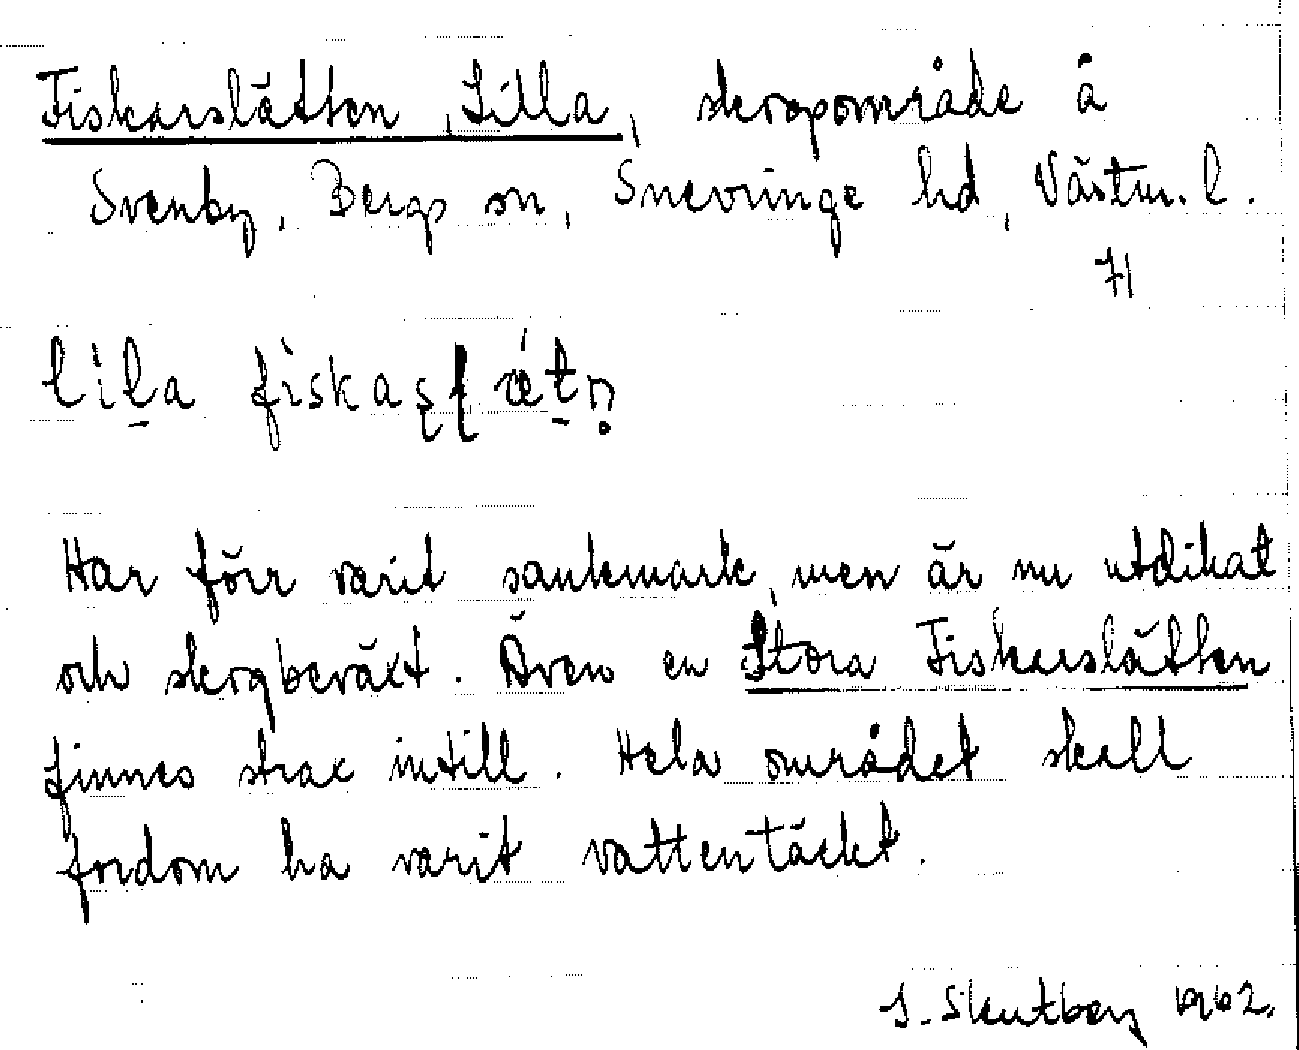 Fiskarslätten, Lilla, skogområde å
Svenby, Bergs sn, Snevringe hd, Västm. l.
71
lila fiskaṣḷätṇ
Har förr varit sankmark, men är nu utdikat
och skogbeväxt. Även en Stora Fiskarslätten
finnes strax intill. Hela området skall
fordom ha varit vattentäckt.
S. Skutberg 1962.